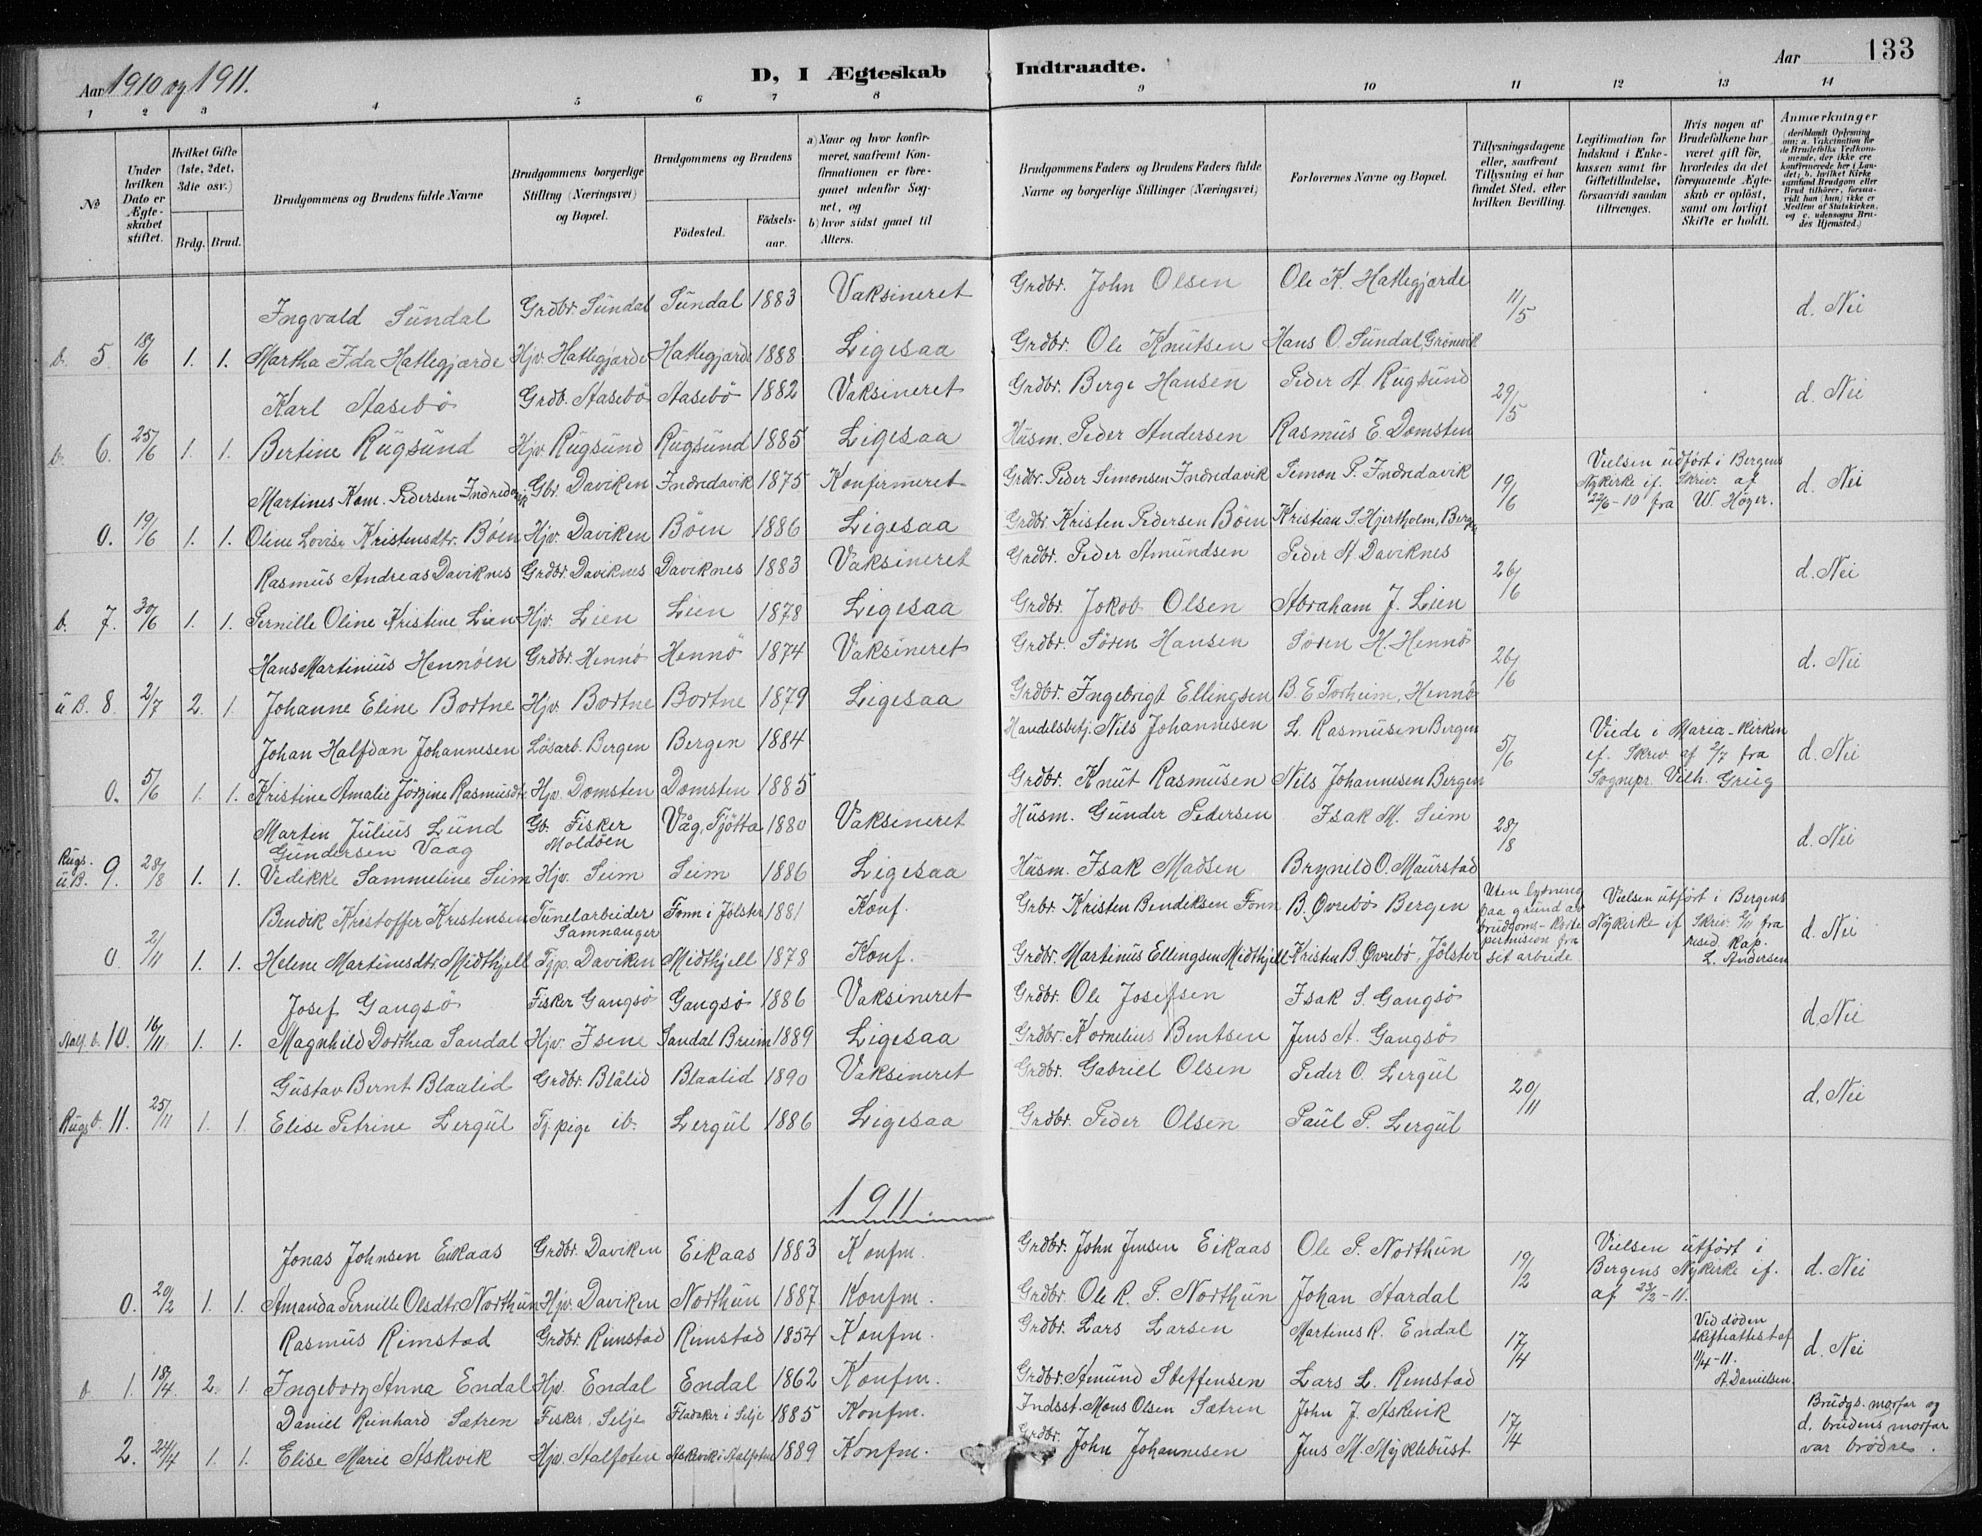 Aar 1910 og 1911.
D, I Ægteskab Indtraadte.
Aar 133
1 2 3 4 5 6 7 8 9 10 11 12 13 14
No
Under hvilken Dato er Ægteskabet stiftet.
Hvilket Gifte (1ste, 2det, 3die osv.)
Brdg. Brud.
Brudgommens og Brudens fulde Navne
Brudgommens borgerlige Stilling (Næringsvei) og Bopæl.
Brudgommens og Brudens
Födested.
Födselsaar.
a) Naar og hvor konfirmeret, saafremt Konfirmationen er foregaaet udenfor Sognet, og
b) hvor sidst gaaet til Alters.
Brudgommens Faders og Brudens Faders fulde Navne og borgerlige Stillinger (Næringsvei)
Forlovernes Navne og Bopæl.
Tillysningsdagene eller, saafremt Tillysning ei har fundet Sted, efter hvilken Bevilling.
Legitimation for Indskud i Enkekassen samt for Giftetilladelse, forsaavidt saadan tiltrænges.
Hvis nogen af Brudefolkene har været gift før, hvorledes da det foregaaende Ægteskab er oplöst, samt om lovligt Skifte er holdt.
Anmærkninger (deriblandt Oplysning om: a. Vakcination for de Brudefolks Vedkommende, der ikke ere konfirmerede her i Landet; b. hvilket Kirkesamfund Brudgom eller Brud tilhörer, forsaavidt han (hun) ikke er Medlem af Statskirken, og c. udensogns Brudes Hjemsted.)
Ingvald Sündal Grdbr. Sündal Sündal 1883 Vaksineret Grdbr. John Olsen Ole K. Hatlegjærde 11/5 d. Nei
b. 5. 18/6 1. 1. Martha Ida Hatlegjærde Hjv. Hatlegjærde Hatlegjærde 1888 Ligesaa Grdbr. Ole Knutsen Hans O. Sündal, Grönevik
Karl Aasebö Grdb. Aasebö Aasebö 1882 Vaksineret Grdbr. Berge Hansen Peder A. Rugsund 29/5 d. Nei
b. 6. 25/6 1. 1. Bertine Rügsünd Hjv. Rügsünd Rügsünd 1885 Ligesaa Husm. Peder Andersen Rasmus E. Domsten
Martines Kom. Pedersen Indredavik Gbr. Daviken Indredavik 1875 Konfirmeret Grdbr. Peder Simonsen Indredavik Simon P. Indredavik 19/6 Vielsen udført i Bergens Nykirke if. Skriv. af 22/6-10 fra W. Höger. d. Nei
0. 19/6 1. 1. Oline Lovise Kristensdtr. Böen Hjv. Daviken Böen 1886 Ligesaa Grdbr. Kristen Pedersen Böen Kristian S. Hjertholm, Bergen
Rasmus Andreas Daviknes Grdbr. Daviknes Daviknes 1883 Vaksineret Grdbr. Peder Amundsen Peder A. Daviknes 26/6 d. Nei
b. 7. 30/6 1. 1. Pernille Oline Kristine Lien Hjv. Lien Lien 1878 Ligesaa Grdbr. Jokob Olsen Abraham J. Lien
Hans Martinius Hennöen Grdbr. Hennö Hennö 1874 Vaksineret Grdbr. Sören Hansen Sören H. Hennö 26/6 d. Nei
ü B. 8. 2/7 2. 1. Johanne Eline Bortne Hjv. Bortne Bortne 1879 Ligesaa Grdbr. Ingebrigt Ellingsen B. E. Torheim, Hennö
Johan Halfdan Johannesen Lösarb. Bergen Bergen 1884 Handelsbetj. Nils Johannesen L. Rasmusen Bergen 5/6 Viede i Maria-kirken ef. Skriv. af 2/7 fra Sognepr. Vilh. Grieg d. Nei
0. 5/6 1. 1. Kristine Amalie Jörgine Rasmusdtr. Hjv. Domsten Domsten 1885 Grdbr. Knut Rasmusen Nils Johannesen Bergen
Martin Julius Lund Gundersen Vaag Gb. Fisker Moldöen Våg, Tjötta 1880 Vaksineret Husm. Gunder Pedersen Isak M. Seim 28/8 d. Nei
Rugs. ü B. 9. 28/8 1. 1. Vedikke Sammeline Seim Hjv. Seim Seim 1886 Ligesaa Husm. Isak Madsen Brynild O. Maurstad
Bendik Kristoffer Kristensen Tunelarbeider Samnanger Fonn i Jölster 1881 Konf. Grbr. Kristen Bendiksen Fonn B. Övrebö Bergen Uten lysning paa grund av brudgoms-korte permision fra sit arbeide Vielsen utført i Bergens Nykirke if Skriv. 2/11 fra resid. Kap. L. Andersen d. Nei
0. 2/11 1. 1. Helene Martinesdtr. Midthjell Tjp. Daviken Midthjell 1878 Konf. Grdbr. Martinus Ellingsen Midthjell Kristen B. Övrebö, Jölster
Josef Gangsö Fisker Gangsö Gangsö 1886 Vaksineret Grdbr. Ole Josefsen Isak S. Gangsö d. Nei
Aalf. b. 10. 16/11 1. 1. Magnhild Dorthea Sandal Hjv. Isene Sandal Breim 1889 Ligesaa Grdbr. Kornelius Bentsen Jens A. Gangsö
Gustav Bernt Blaalid Grdbr. Blålid Blaalid 1890 Vaksineret Grdbr. Gabriel Olsen Peder O. Lergül 20/11 d. Nei
Rugs b. 11. 25/11 1. 1. Elise Petrine Lergül Tj.pige ib. Lergül 1886 Ligesaa Grdbr. Peder Olsen Paul P. Lergül
1911.
Jonas Johnsen Eikaas Grdbr. Daviken Eikaas 1883 Konfm. Grdbr. John Jensen Eikaas Ole P. Northun 19/2 Vielsen utført i Bergens Nykirke ef. af 23/2-11. d. Nei
0. 20/2 1. 1. Amanda Pernille Olsdtr. Northun Hjv. Daviken Northun 1887 Konfm. Grdbr. Ole R. P. Northun Johan Aardal
Rasmus Rimstad Grdbr. Rimstad Rimstad 1854 Konfm. Grdbr. Lars Larsen Martines R. Endal 17/4 Ved döden skifteattest af 11/4-11. A. Danielsen. d. Nei
b 1. 18/4. 2. 1. Ingeborg Anna Endal Hjv. Endal Endal 1862 Konfm. Grdbr. Amund Steffensen Lars L. Rimstad
Daniel Reinhard Sætren Fisker, Selje Fladaker i Selje 1885 Konfm. Indsst. Mons Olsen Sætren John J. Askevik 17/4 Brudgs. morfar og d. brudens morfar var brödre.
2. 24/4 1. 1. Elise Marie Askevik Hjv. Aalfoten Askevik i Aalfoten 1889 Konfm. Grdbr. John Johannesen Jens M. Myklebust